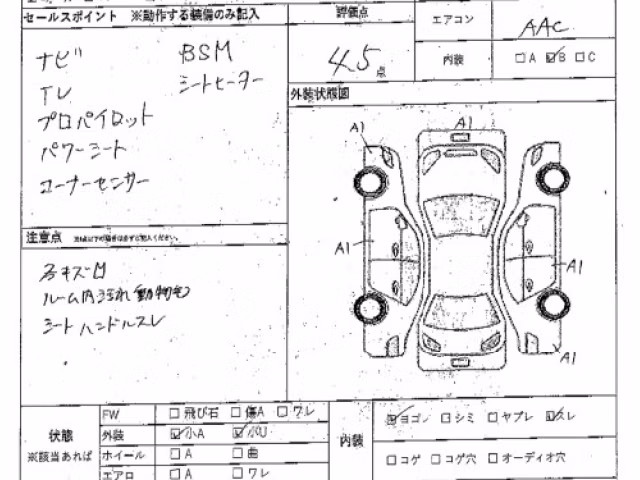 セールスポイント ※動作する装備のみ記入
評価点
エアコン AAC
ナビ BSM
4.5 点
内装 □A ☑B □C
TV シートヒーター
外装状態図
プロパイロット
パワーシート
コーナーセンサー
A1 A1
注意点
A1 A1
ルーム内汚れ(動物毛)
シート ハンドルスレ
A1
状態
※該当あれば
FW □飛び石 □傷A □ワレ
外装 ☑小A ☑小U
ホイール □A □曲
エアロ □A □ワレ
内装 ☑ヨゴレ □シミ □ヤブレ ☑スレ
□コゲ □コゲ穴 □オーディオ穴